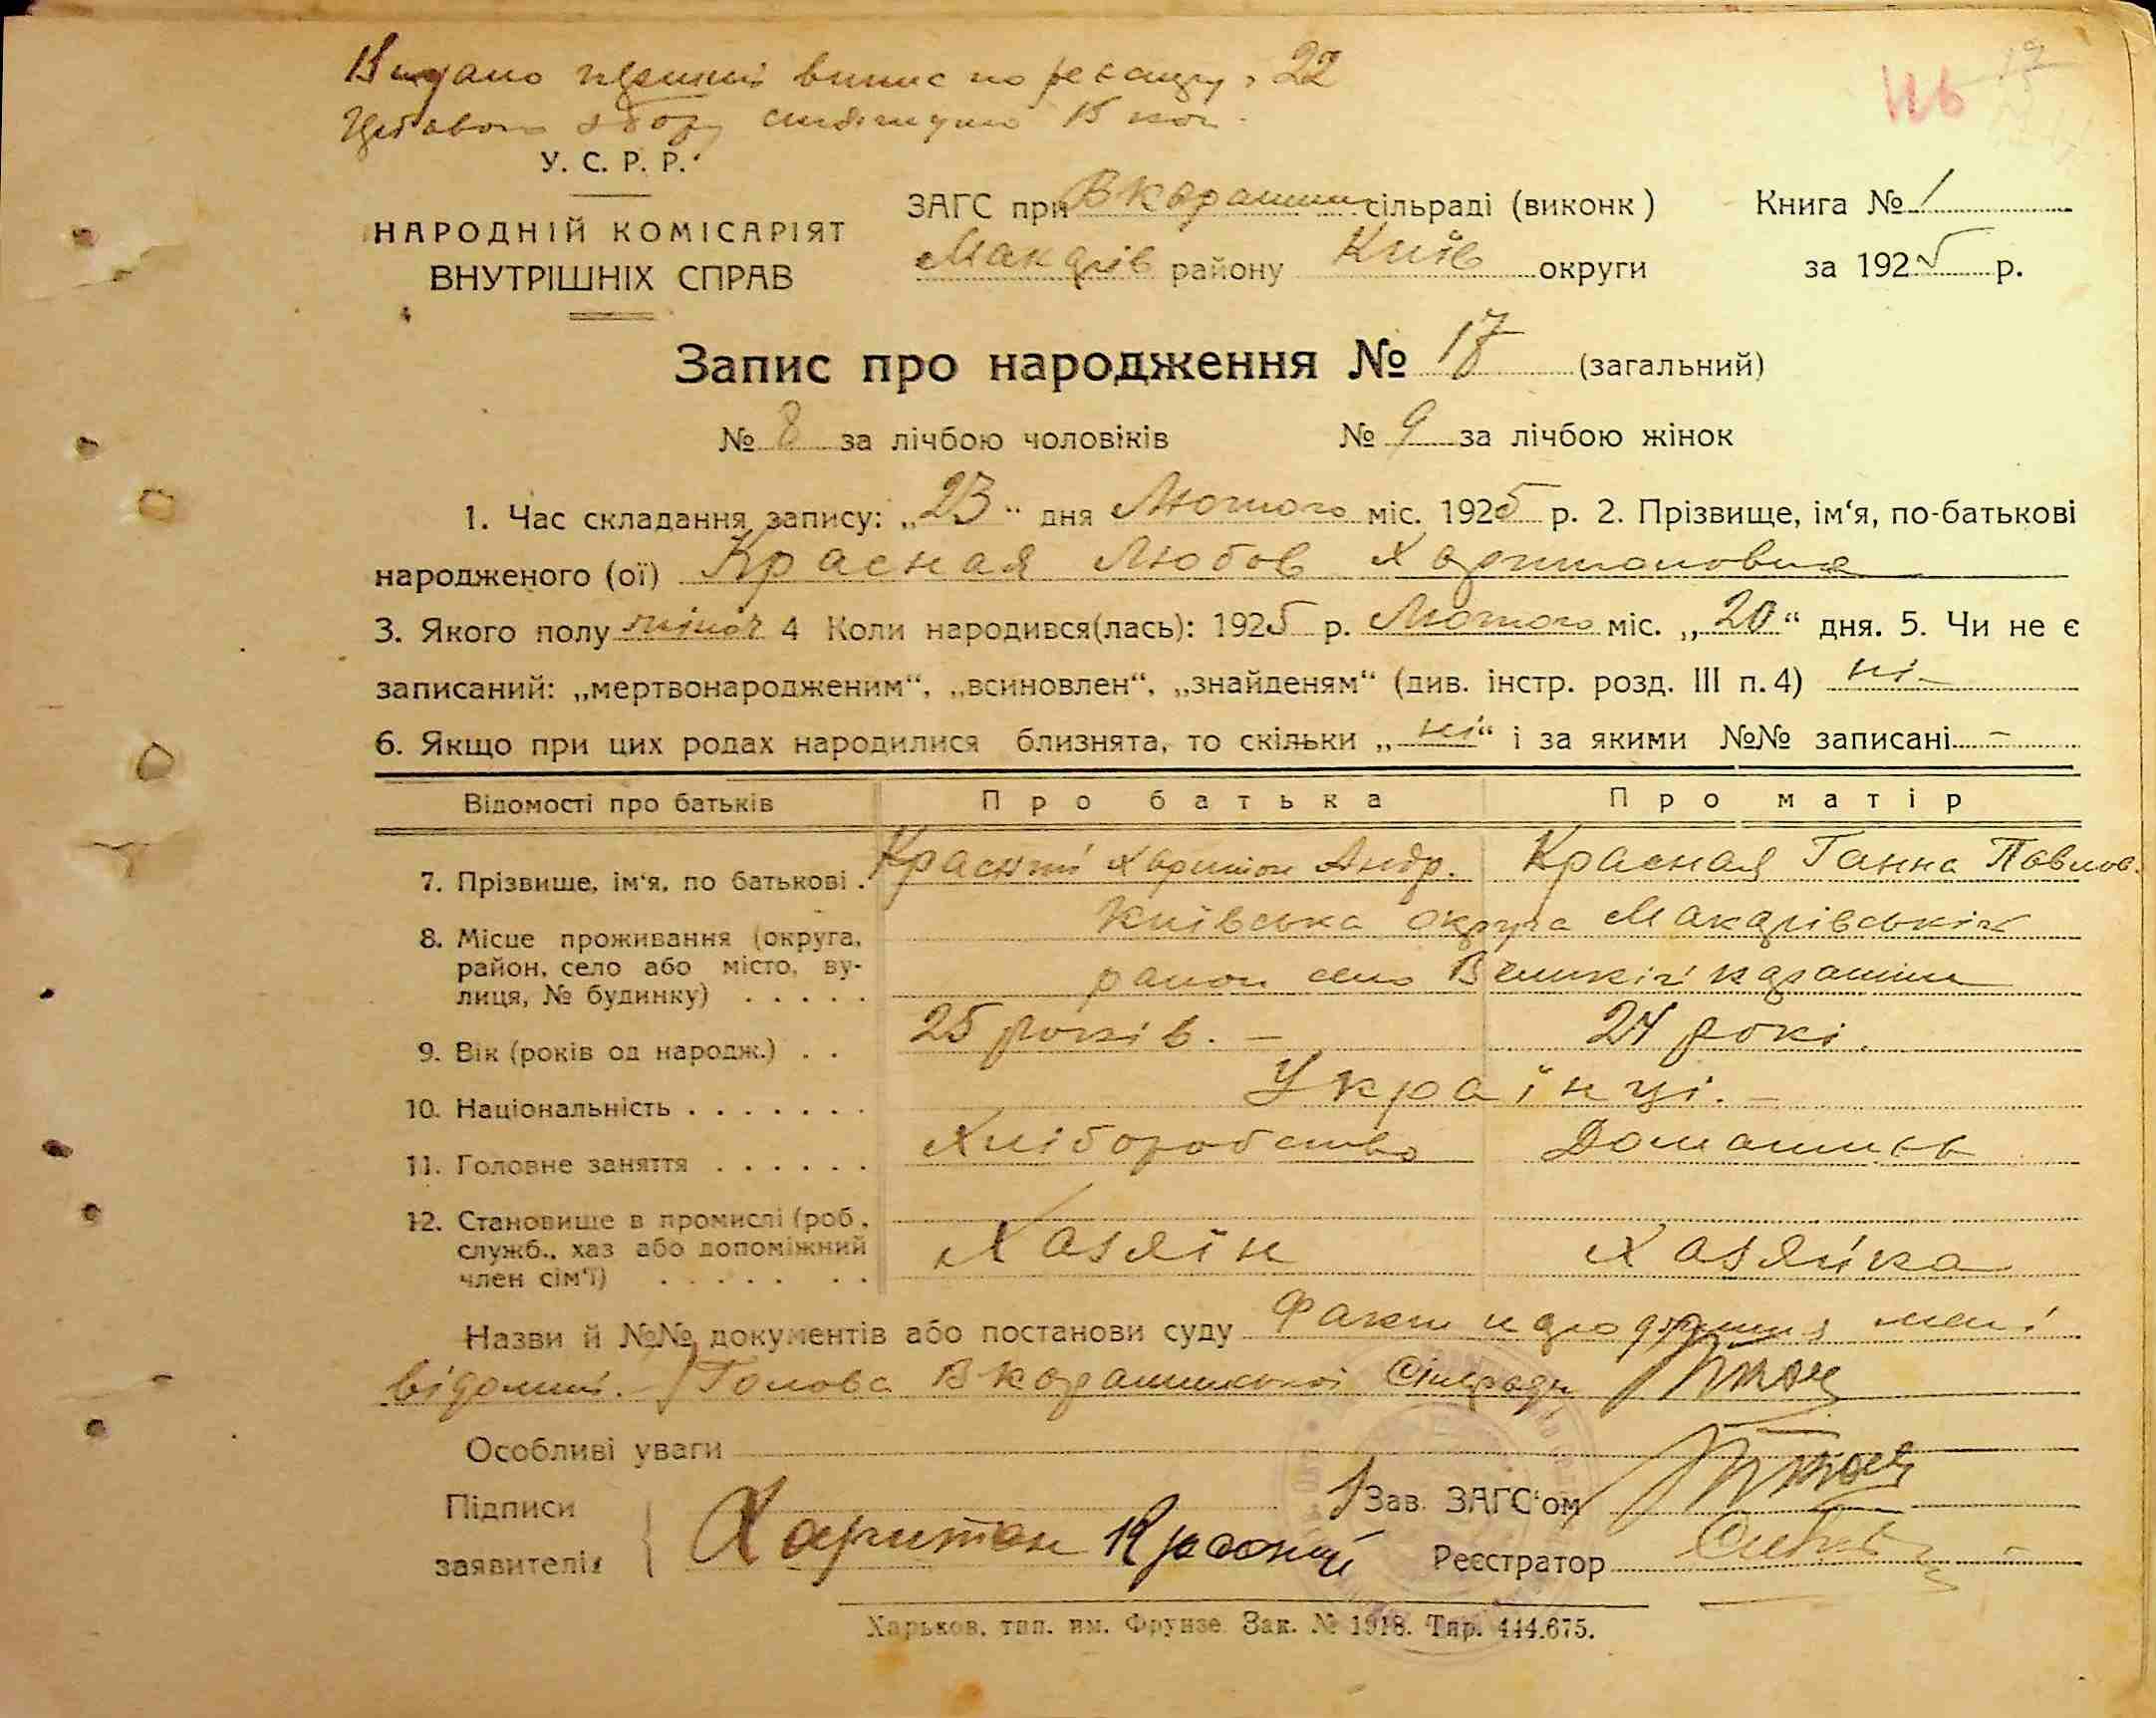 Видано первий випис по реєстру 22
збору 15 коп.
У. С. Р. Р.
НАРОДНІЙ КОМІСАРІЯТ
ВНУТРІШНІХ СПРАВ
ЗАГС при В Карашин сільраді (виконк) Книга № 1
Макарів району Київ округи за 1925 р.
Запис про народження № 17 (загальний)
№ 8 за лічбою чоловіків № 9 за лічбою жінок
1. Час складання запису: „23“ дня Лютого міс. 1925 р. 2. Прізвище, ім‘я, по-батькові
народженого (ої) Красная Любов Харитоновна
3. Якого полу жіноч 4 Коли народився(лась): 1925 р. Лютого міс. „20“ дня. 5. Чи не є
записаний: „мертвонародженим“, „всиновлен“, „знайденям“ (див. інстр. розд. III п. 4) ні
6. Якщо при цих родах народилися близнята, то скільки „ні“ і за якими №№ записані –
Відомості про батьків Про батька Про матір
7. Прізвище, ім‘я, по батькові . Красний Харитон Андр. Красная Ганна Павлов.
8. Місце проживання (округа, Київська округа Макарівський
район, село або місто, ву- район село Великий Карашин
лиця, № будинку) . . . . .
9. Вік (років од народж.) . . 25 років. – 24 рокі.
10. Національність . . . . . . . Українці. –
11. Головне заняття . . . . . . Хліборобство Домашнєє
12. Становище в промислі (роб.,
служб., хаз або допоміжний Хазяїн Хазяйка
член сім‘ї) . . . . . . .
Назви й №№ документів або постанови суду Факт народження мені
відомий. Голова В Карашинської Сільради
Особливі уваги
Підписи Зав. ЗАГС‘ом
заявителів Харитон Красний Реєстратор
Харьков, тип. им. Фрунзе. Зак. № 1918. Тир. 444.675.